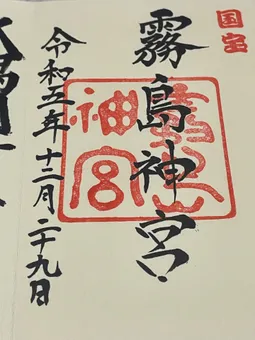 国宝
霧島神宮
令和五年十二月二十九日